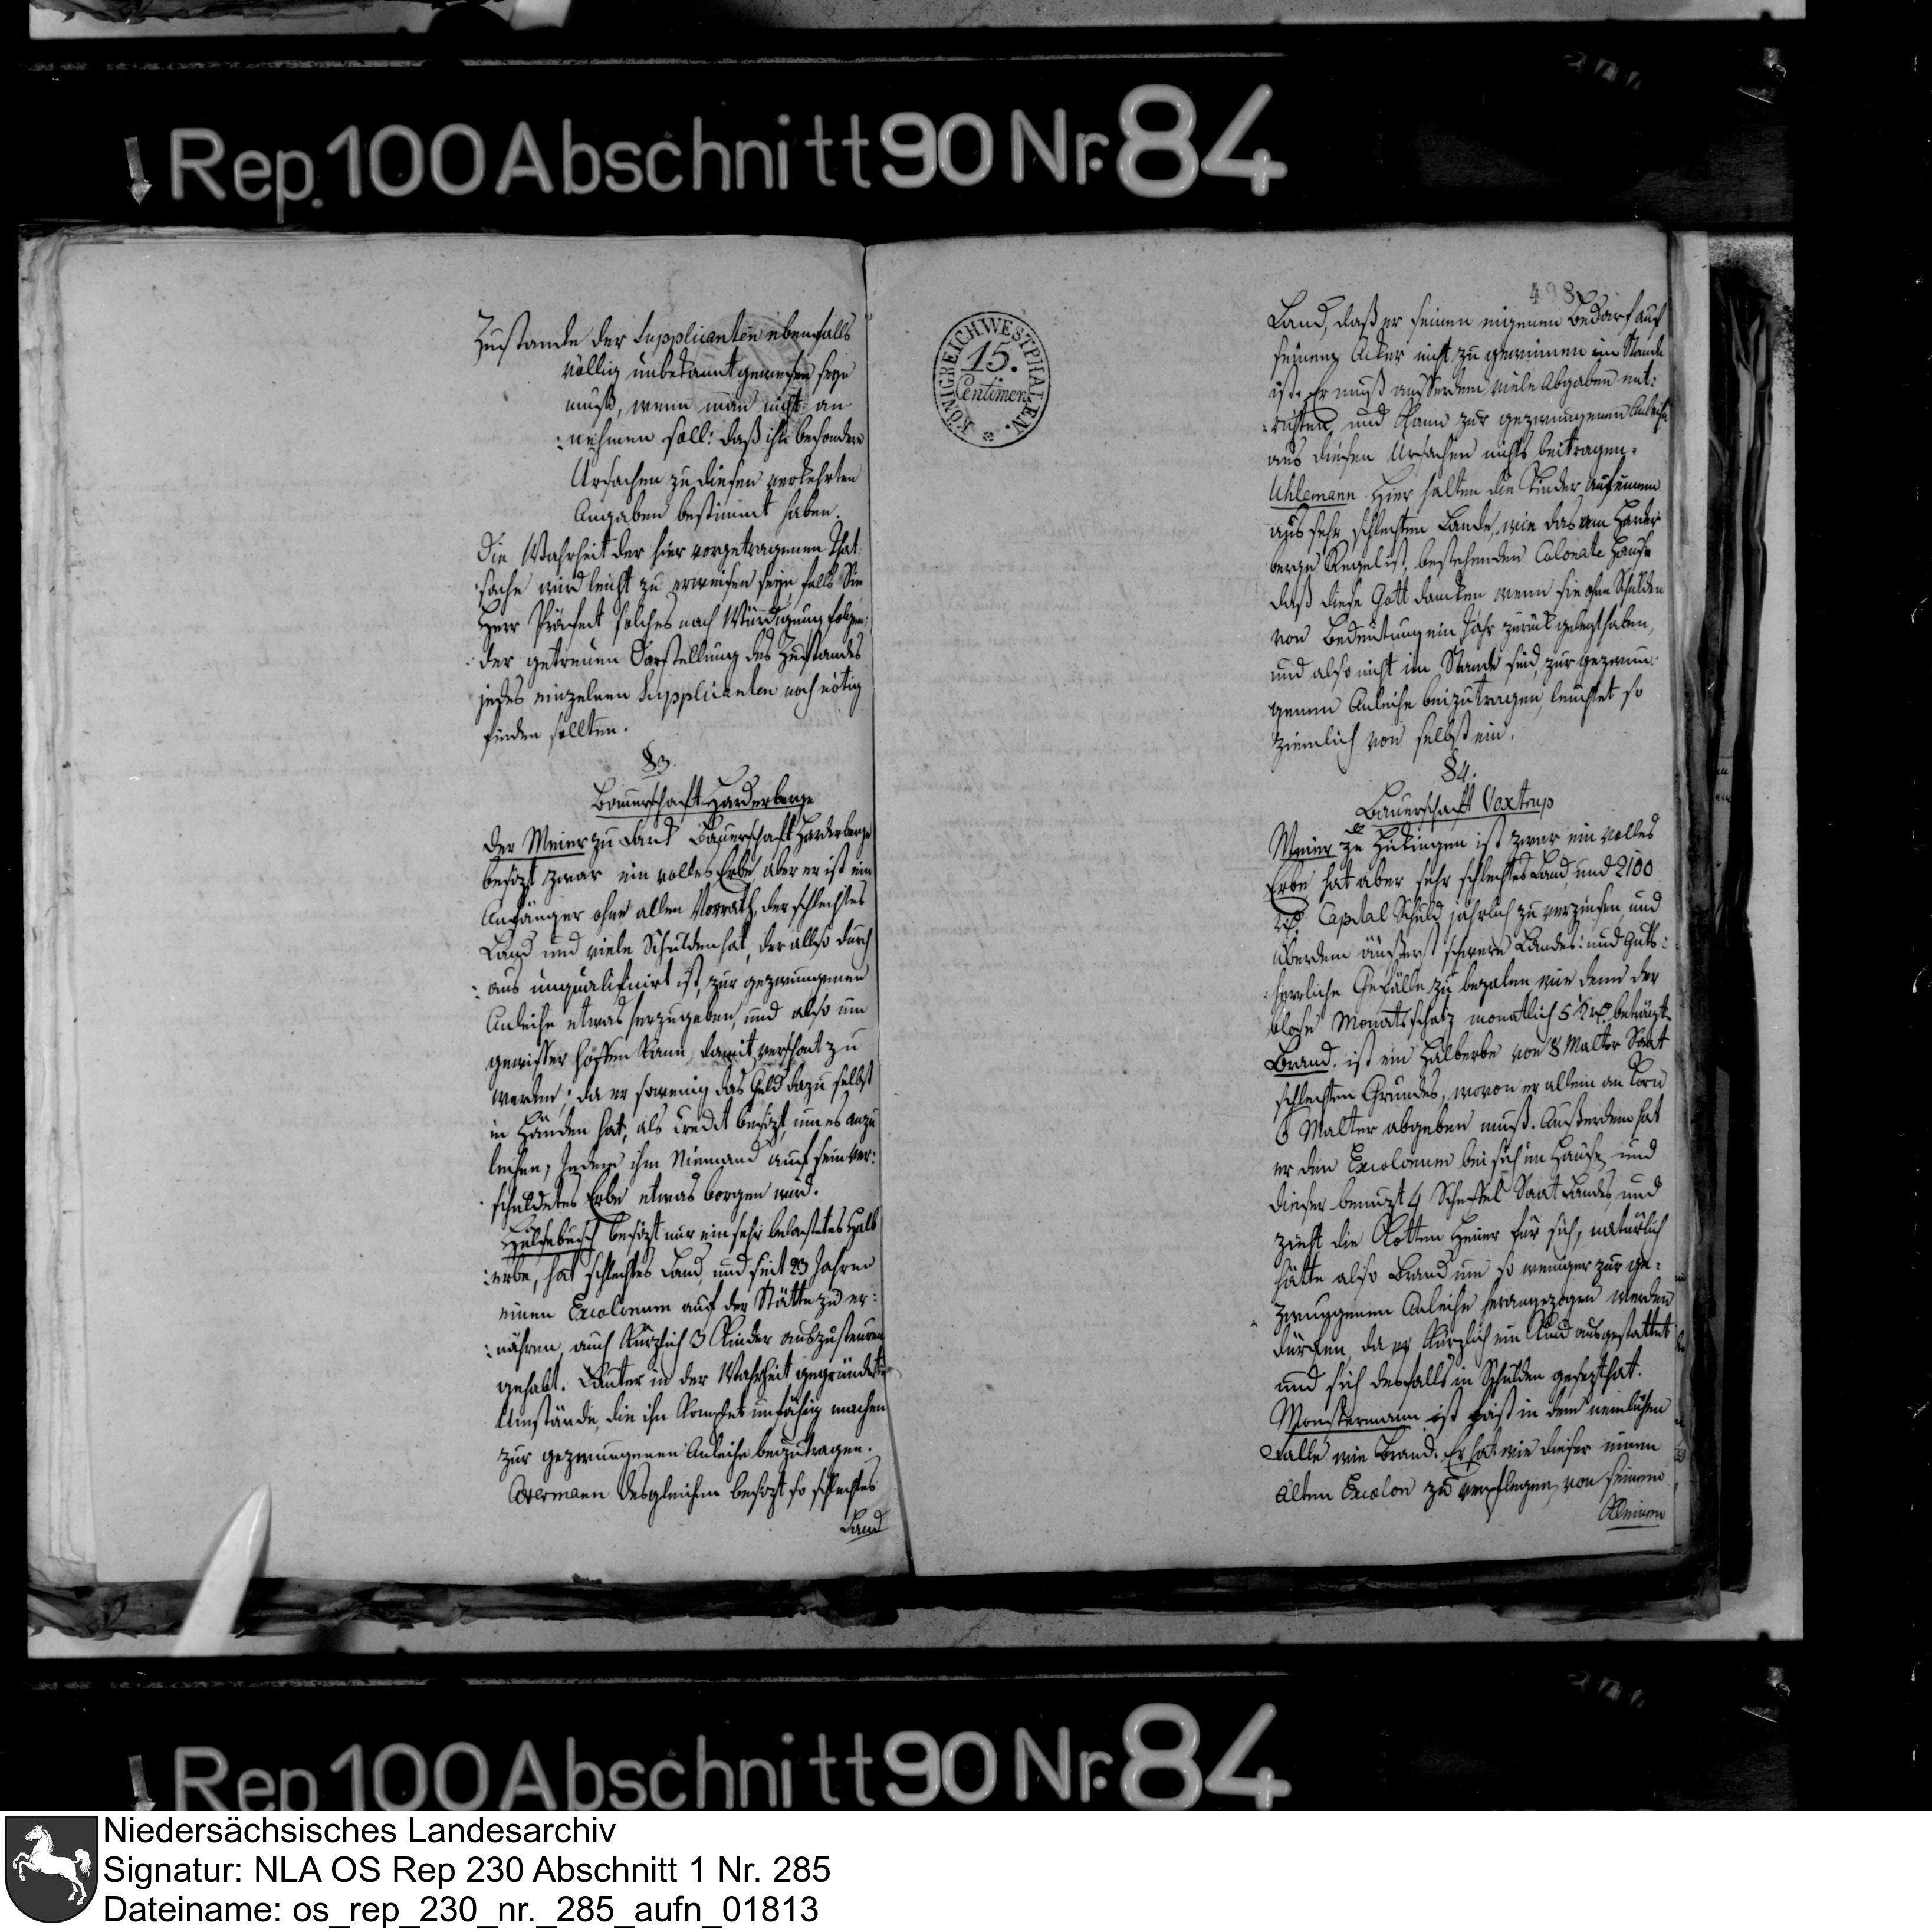 Rep. 100 Abschnitt 90 Nr. 84
Zustande der Supplicanten ebenfalls
völlig unbekannt gewesen seyn
muß, wenn man nicht an
: nehmen soll: daß ihn besondere
Ursachen zu diesen verkehrten
Angaben bestimmt haben.
Die Wahrheit der hier vorgetragenen That
: sache wird leicht zu erweisen seyn, falls Sie
Herr Präfect solches nach Würdigung folgen:
: der getreuen Darstellung des Zustandes
jedes einzelnen Supplicanten noch nötig
finden sollten.
§3.
Bauerschaft Harderberge
Der Meier zu Bauerschaft Harderberge
besizt zwar ein volles Erbe, aber er ist ein
Anfänger ohne allen Vorrath, der schlechtes
Land und viele Schulden hat, der allso durch
: aus unqualificirt ist, zur gezwungenen
Anleihe etwas herzugeben, und also um
gewisser hoffen kann, damit verschont zu
werden; da er sowenig das Geld dazu selbst
in Händen hat, als Credit besizt, um es anzu
leihen, indem ihm Niemand auf sein ver:
: schuldetes Erbe etwas borgen wird.
Hülsebusch besizt nur ein sehr belastetes Halb
: erbe, hat schlechtes Land, und seit 23 Jahren
einen Excolonum auf der Stätte zu er:
: nähren, auch kürzlich 3 Kinder auszusteuren
gehabt. Lauter in der Wahrheit gegründete
Umstände, die ihn unfähig machen
zur gezwungenen Anleihe beizutragen.
desgleichen besizt so schlechtes
Land
KÖNIGREICH WESTPHALEN.
15.
Centimen
498
Land, daß er seinen eigenen Bedarf auf
seinem Acker nicht zu gewinnen im Stande
ist. Er muß ausserdem viele Abgaben ent:
: richten, und kann zur gezwungenen Anleihe
aus diesen Ursachen nichts beitragen.
Uhlemann. Hier halten die Kinder auf einem
aus sehr schlechten Lande, wie das am Harder
berge Regel ist, bestehenden Colonate Hause
daß diese Gott danken wenn sie ohne Schulden
von Bedeutung ein Jahr zurück gelegt haben,
und also nicht im Stande sind, zur gezwun:
genen Anleihe beizutragen, leuchtet so
ziemlich von selbst ein.
§4.
Bauerschaft Voxtrup
Meier zu Hikingen ist zwar ein volles
Erbe, hat aber sehr schlechtes Land, und 2100
Capital Schuld jährlich zu verzinsen, und
überdem äusserst schwere Landes: und Guts:
: herrliche Gefälle zu bezalen wie denn der
blose Monatsschatz monatlich beträgt.
Brand. ist ein Halberbe von 8 Malter Saat
schlechten Grundes, wovon er allein an Korn
6 Malter abgeben muß. Außerdem hat
er den Excolonum bei sich im Hause, und
dieser benuzt 4 Scheffel Saat Landes, und
zieht die Kotten Heuer für sich, natürlich
hätte also Brand um so weniger zur ge:
zwungenen Anleihe herangezogen werden
dürfen, da er kürzlich ein Kind ausgestattet
und sich desfalls in Schulden gesezt hat.
Monstermann ist fast in dem nemlichen
Falle wie Brand. Er hat wie dieser einen
alten Excolon zu verpflegen, von seinem
kleinem
Rep 100 Abschnitt 90 Nr. 84
Niedersächsisches Landesarchiv
Signatur: NLA OS Rep 230 Abschnitt 1 Nr. 285
Dateiname: os_rep_230_nr._285_aufn_01813